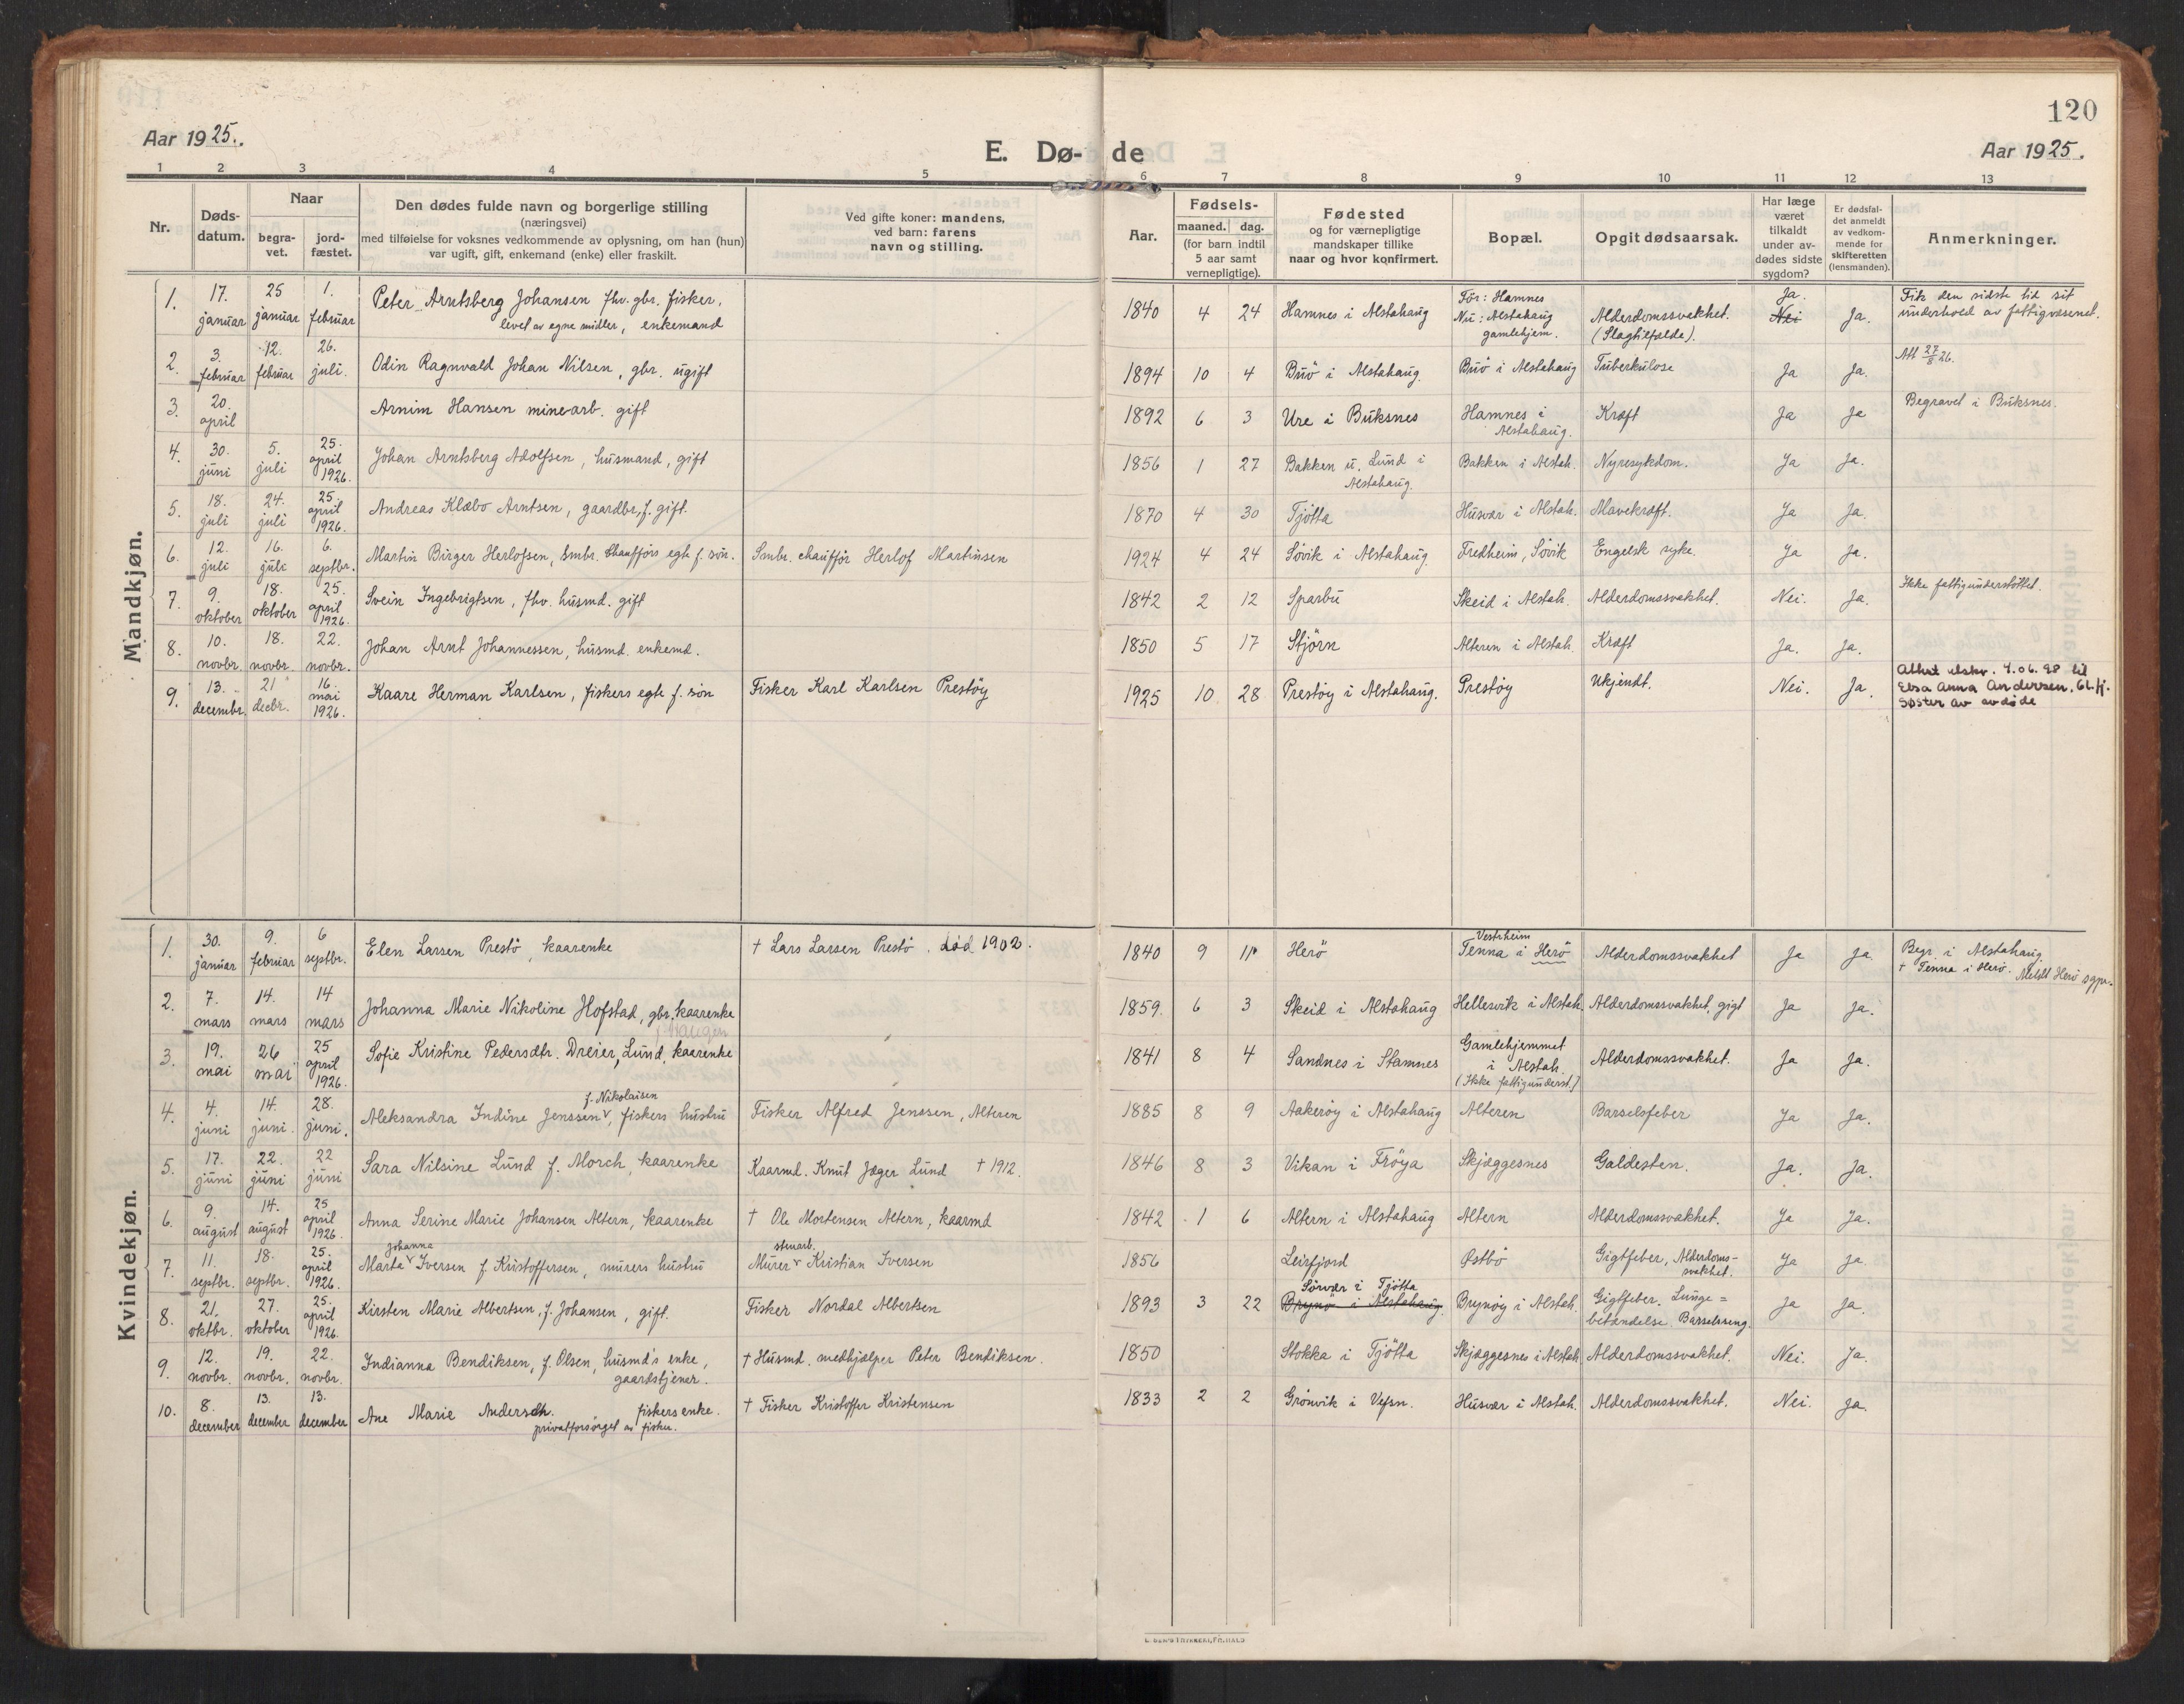 120
Aar 1925.
E. Dø- de
Aar 1925.
1 2 3 4 5 6 7 8 9 10 11 12 13
Nr.
Døds-
datum.
Naar
begra-
vet.
jord-
fæstet.
Den dødes fulde navn og borgerlige stilling
(næringsvei)
med tilføielse for voksnes vedkommende av oplysning, om han (hun)
var ugift, gift, enkemand (enke) eller fraskilt.
Ved gifte koner: mandens,
ved barn: farens
navn og stilling.
Aar.
Fødsels-
maaned. dag.
(for barn indtil
5 aar samt
vernepligtige).
Fødested
og for værnepligtige
mandskaper tillike
naar og hvor konfirmert.
Bopæl.
Opgit dødsaarsak.
Har læge
været
tilkaldt
under av-
dødes sidste
sygdom?
Er dødsfal-
det anmeldt
av vedkom-
mende for
skifteretten
(lensmanden).
Anmerkninger.
Mandkjøn.
1. 17. januar 25 januar 1. februar Peter Arntsberg Johansen fhv. gbr. fisker, levet av egne midler, enkemand 1840 4 24 Hamnes i Alstahaug Før: Hamnes Nu: Alstahaug gamlehjem. Alderdomssvakhet. (Slagtilfælde). Ja. Nei Ja. Fik den sidste tid sit underhold av fattigvæsenet.
2. 3. februar 12. februar 26. juli. Odin Ragnvald Johan Nilsen, gbr. ugift 1894 10 4 Buö i Alstahaug. Buö i Alstahaug Tuberkulose Ja Ja. Att 27/8 26.
3. 20. april Arnim Hansen minearb. gift 1892 6 3 Ure i Buksnes Hamnes i Alstahaug. Kræft Ja Ja Begravet i Buksnes.
4. 30. juni 5. juli 25. april 1926. Johan Arntsberg Adolfsen, husmand, gift 1856 1 27 Bakken u. Lund i Alstahaug. Bakken i Alstah. Nyresykdom. Ja Ja.
5. 18. juli 24. juli 25. april 1926. Andreas Klæbo Arntsen, gaardbr. f. gift. 1870 4 30 Tjötta Husvær i Alstah. Mavekræft. Ja Ja.
6. 12. juli 16. juli 6. septbr. Martin Birger Herlofsen, Smbr. Chauffórs egte f. sön. Smbr. chauffór Herlof Martinsen 1924 4 24 Sövik i Alstahaug. Fredheim, Sövik Engelsk syke. Ja Ja.
7. 9. oktober 18. oktober 25. april 1926. Svein Ingebrigtsen, fhv. husmd. gift 1842 2 12 Sparbu Skeid i Alstah. Alderdomssvakhet. Nei. Ja. Ikke fattigunderstöttet.
8. 10. novbr. 18. novbr. 22. novbr. Johan Arnt Johannessen, husmd. enkemd. 1850 5 17 Stjörn Alteren i Alstah. Kræft Ja. Ja.
9. 13. decembr. 21 decbr. 16. mai 1926. Kaare Herman Karlsen, fiskers egte f. sön Fisker Karl Karlsen Prestöy 1925 10 28 Prestöy i Alstahaug. Prestöy Ukjendt. Nei. Ja. Athst utskr. 4.06.98 til Elsa Anna Andersen. 61. fj. søster av avdøde
Kvindekjøn.
1. 30. januar 9. februar 6 septbr. Elen Larsen Prestö, kaarenke † Lars Larsen Prestö. död 1902. 1840 9 11 Herö Vestrheim Tenna i Herö Alderdomssvakhet Ja Ja Begr. i Alstahaug † Tenna i Herö. Meldt Herö sgpr.
2. 7. mars 14. mars 14 mars Johanna Marie Nikoline Hofstad, gbr. kaarenke 1859. 6 3 Skeid i Alstahaug Hellesvik i Alstah. Alderdomssvakhet, gigt Ja Ja.
3. 19. mai 26 mai 25 april 1926. f. Haugen Sofie Kristine Pedersdtr. Dreier, Lund, kaarenke 1841 8 4 Sandnes i Stamnes Gamlehjemmet i Alstah. (Ikke fattigunderst.) Alderdomssvakhet. Ja Ja.
4. 4. juni 14. juni. 28. juni. Aleksandra Indine Jenssen f. Nikolaisen, fiskers hustru Fisker Alfred Jenssen, Alteren 1885 8 9 Aakeröy i Alstahaug Alteren Barselsfeber Ja Ja.
5. 17. juni 22. juni 22 juni Sara Nilsine Lund f. Morch, kaarenke Kaarmd. Knut Jæger Lund † 1912. 1846 8 3 Vikan i Fröya Skjæggesnes Galdesten. Ja. Ja.
6. 9. august 14. august 25 april 1926. Anna Serine Marie Johansen Altern, kaarenke † Ole Mortensen Altern, kaarmd 1842 1 6 Altern i Alstahaug Altern Alderdomssvakhet. Ja Ja.
7. 11. septbr. 18. septbr. 25. april 1926. Marta Johanna Iversen f. Kristoffersen, murers hustru Murer stenarb. Kristian Iversen 1856 Leirfjord Østbö Gigtfeber, Alderdoms-svakhet. Ja Ja.
8. 21. oktbr. 27. oktober 25. april 1926. Kirsten Marie Albertsen, f. Johansen, gift. Fisker Nordal Albertsen 1893 3 22 Sörvær i Tjötta Brynö i Alstahaug. Brynöy i Alstah. Gigtfeber. Lunge= betændelse. Barselseng. Ja Ja.
9. 12. novbr. 19. novbr. 22. novbr. Indianna Bendiksen, f. Olsen, husmd's enke, gaardstjener. † Husmd. medhjælper Peter Bendiksen. 1850 Stokka i Tjötta Skjæggesnes i Alstah. Alderdomssvakhet. Nei. Ja.
10. 8. december 13. december 13. december Ane Marie Andersdh. fiskers enke. privatforsörget av fisker. † Fisker Kristoffer Kristensen 1833 2 2 Grönvik i Vefsn. Husvær i Alstah. Alderdomssvakhet. Nei. Ja.